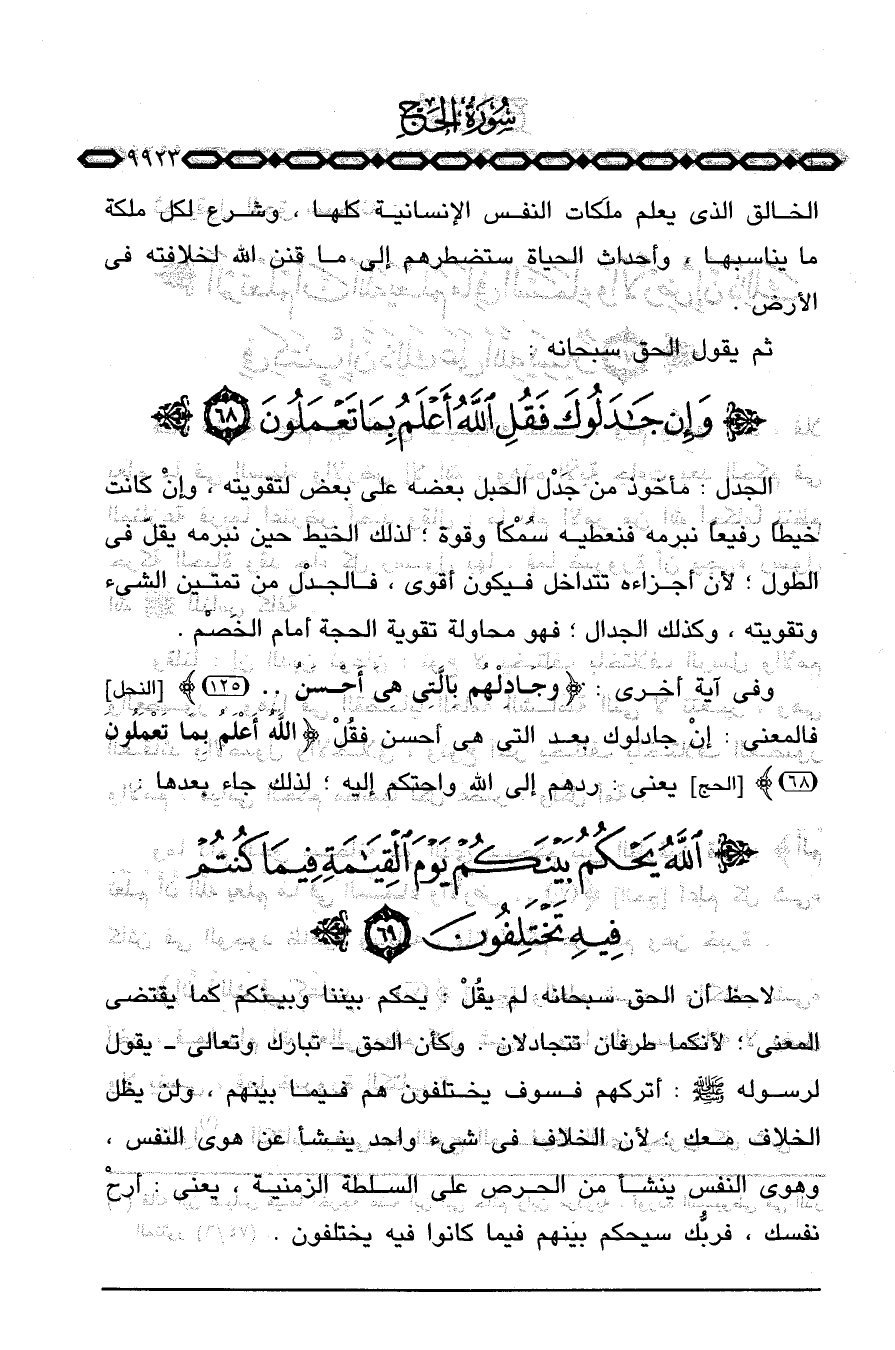 سُورَةُ الحَجِّ
٩٩٢٣
الخالق الذى يعلم ملَكات النفس الإنسانية كلها ، وشرع لكل ملكة
ما يناسبها ، وأحداث الحياة ستضطرهم إلى ما قنن الله لخلافته فى
الأرض .
ثم يقول الحق سبحانه :
وَإِن جَٰدَلُوكَ فَقُلِ ٱللَّهُ أَعۡلَمُ بِمَا تَعۡمَلُونَ ٦٨
الجدل : مأخوذ من جَدْل الحبل بعضه على بعض لتقويته ، وإنْ كانت
خيطاً رفيعاً نبرمه فنعطيه سُمْكاً وقوة ؛ لذلك الخيط حين نبرمه يقلّ فى
الطول ؛ لأن أجزاءه تتداخل فيكون أقوى ، فالجدْل من تمتين الشىء
وتقويته ، وكذلك الجدال ؛ فهو محاولة تقوية الحجة أمام الخَصْم .
وفى آية أخرى : ﴿ وجادلهم بالَّتى هى أَحسن .. (١٢٥) ﴾ [النحل]
فالمعنى : إنْ جادلوك بعد التى هى أحسن فقُلْ ﴿ اللَّهُ أَعْلَمُ بما تَعْمَلُون
(٦٨) ﴾ [الحج] يعنى : ردهم إلى الله واحتكم إليه ؛ لذلك جاء بعدها :
ٱللَّهُ يَحۡكُمُ بَيۡنَكُمۡ يَوۡمَ ٱلۡقِيَٰمَةِ فِيمَا كُنتُمۡ
فِيهِ تَخۡتَلِفُونَ ٦٩
لاحظ أن الحق سبحانه لم يقُلْ : يحكم بيننا وبينكم كما يقتضى
المعنى ؛ لأنكما طرفان تتجادلان . وكأن الحق ـ تبارك وتعالى ـ يقول
لرسوله ﷺ : أتركهم فسوف يختلفون هم فيما بينهم ، ولن يظل
الخلاف معك ؛ لأن الخلاف فى شىء واحد ينشأ عن هوى النفس ،
وهوى النفس ينشأ من الحرص على السلطة الزمنية ، يعنى : أرحْ
نفسك ، فربُّك سيحكم بينهم فيما كانوا فيه يختلفون .